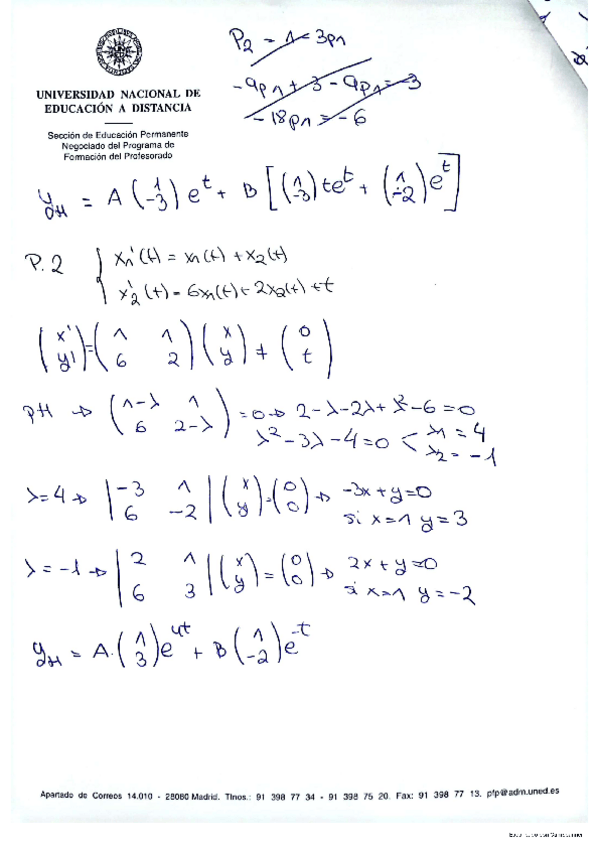 P₂ = 1 - 3p₁
-9p₁ + 3 - 9p₁ = -3
-18p₁ = -6
UNIVERSIDAD NACIONAL DE
EDUCACIÓN A DISTANCIA
Sección de Educación Permanente
Negociado del Programa de
Formación del Profesorado
y_GH = A (1 -3) e^t + B [(1 -3) te^t + (1 -2) e^t]
P.2 { x₁'(t) = x₁(t) + x₂(t)
x₂'(t) = 6x₁(t) + 2x₂(t) + t
(x' y') = (1 1 6 2) (x y) + (0 t)
pH → (1-λ 1 6 2-λ) = 0 → 2-λ-2λ+λ²-6=0
λ²-3λ-4=0 < λ₁ = 4 λ₂ = -1
λ=4 → |-3 1 6 -2| (x y) = (0 0) → -3x+y=0
si x=1 y=3
λ=-1 → |2 1 6 3| (x y) = (0 0) → 2x+y=0
si x=1 y=-2
y_GH = A·(1 3) e^4t + B (1 -2) e^-t
Apartado de Correos 14.010 - 28080 Madrid. Tlnos.: 91 398 77 34 - 91 398 75 20. Fax: 91 398 77 13. pfp@adm.uned.es